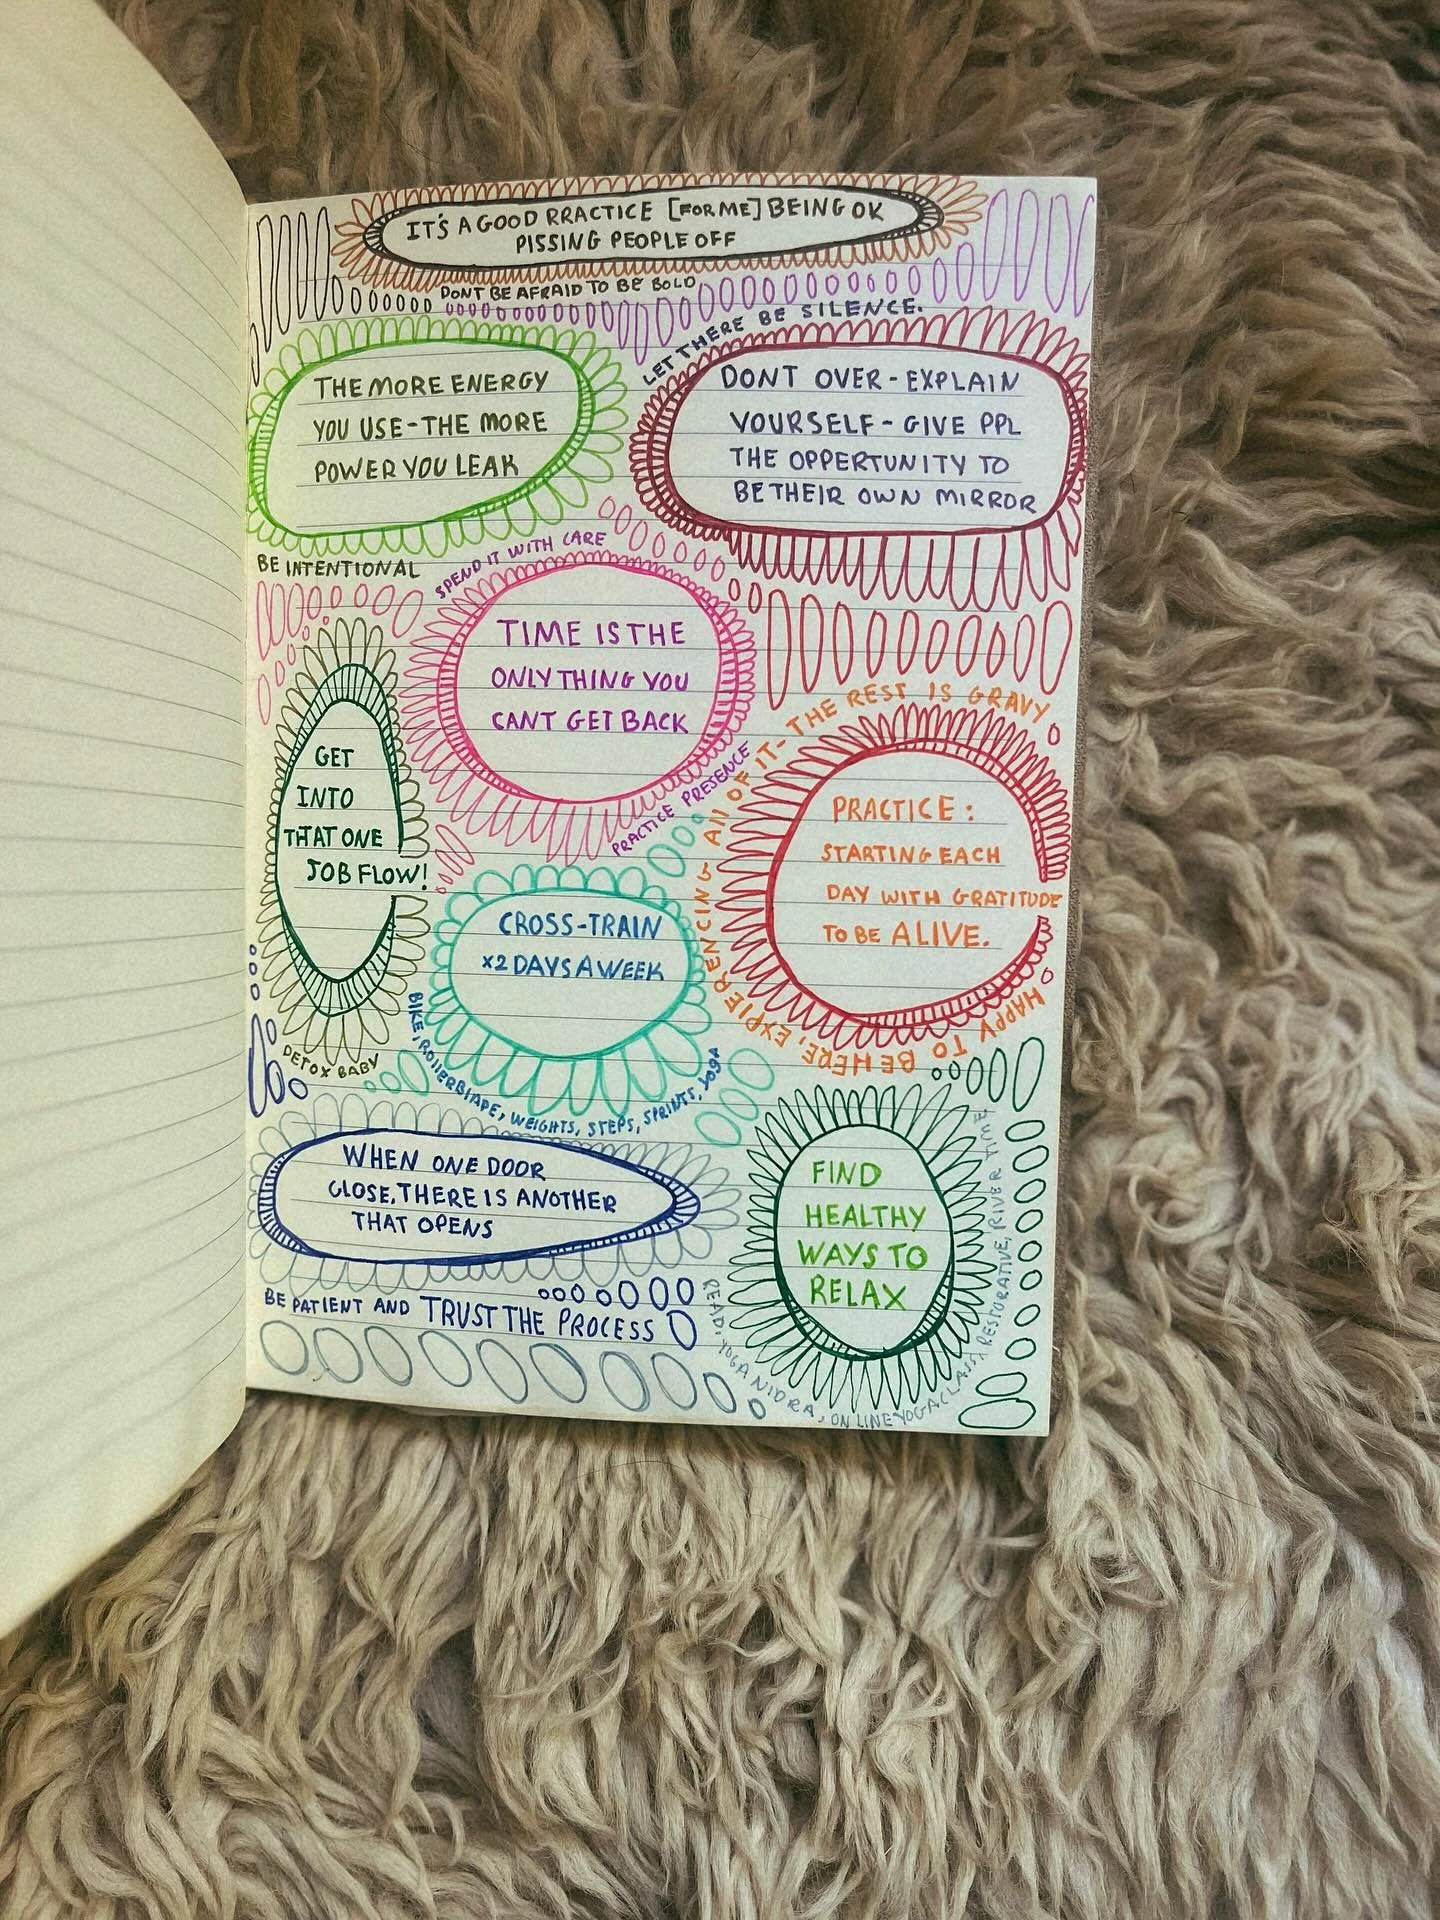 IT'S A GOOD PRACTICE [FOR ME] BEING OK
PISSING PEOPLE OFF
DONT BE AFRAID TO BE BOLD
LET THERE BE SILENCE.
THE MORE ENERGY
YOU USE - THE MORE
POWER YOU LEAK
DONT OVER - EXPLAIN
YOURSELF - GIVE PPL
THE OPPERTUNITY TO
BE THEIR OWN MIRROR
BE INTENTIONAL
SPEND IT WITH CARE
TIME IS THE
ONLY THING YOU
CANT GET BACK
PRACTICE PRESENCE
GET
INTO
THAT ONE
JOB FLOW!
DETOX BABY
HAPPY TO BE HERE, EXPIERENCING All OF IT - THE REST IS GRAVY
PRACTICE:
STARTING EACH
DAY WITH GRATITUDE
TO BE ALIVE.
CROSS-TRAIN
x2 DAYS A WEEK
BIKE, ROllERBlADE, WEIGHTS, STEPS, SPRINTS, YOGA
WHEN ONE DOOR
CLOSE, THERE IS ANOTHER
THAT OPENS
BE PATIENT AND TRUST THE PROCESS
FIND
HEALTHY
WAYS TO
RELAX
READ, YOGA NIDRA, ON LINE YOGA CLASS, RESTORATIVE, RIVER TIME